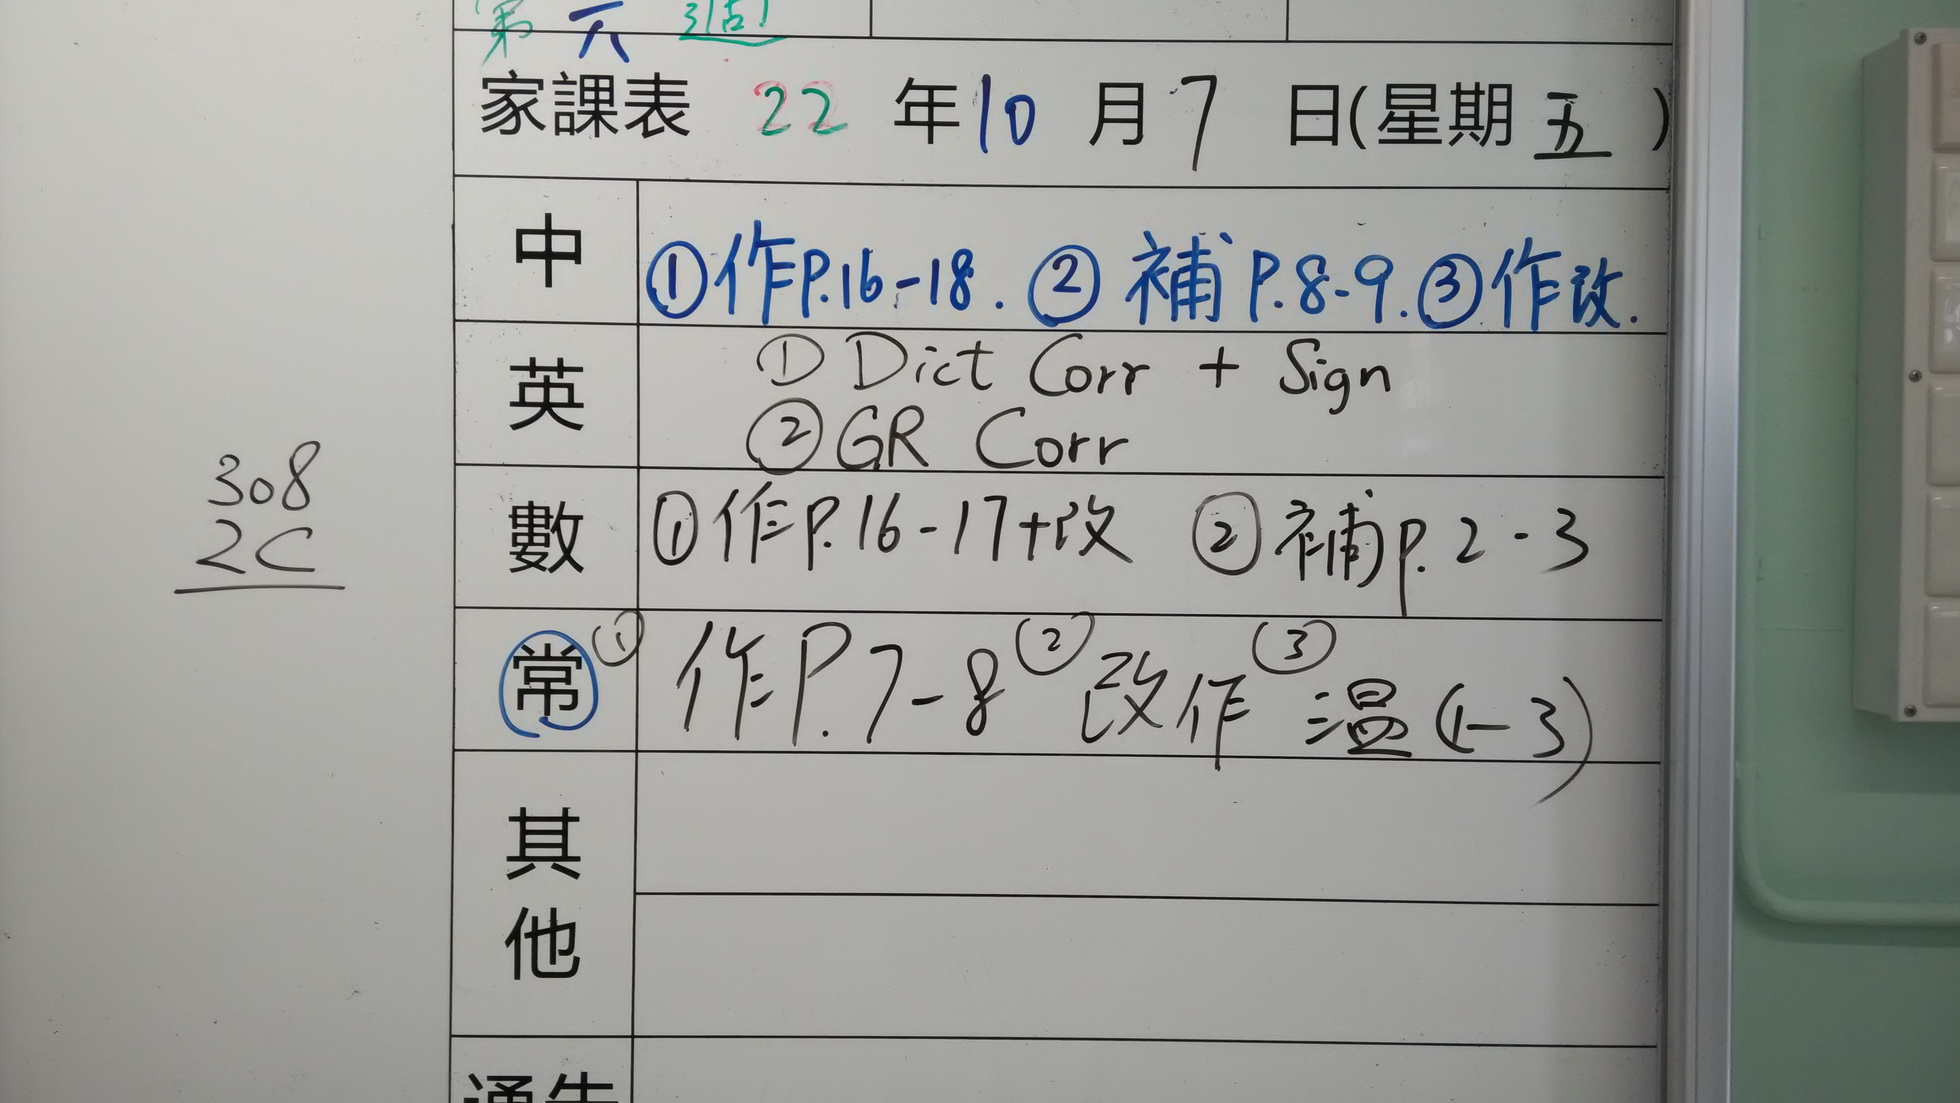 第六週
家課表 22年10月7日(星期五)
中 ①作P.16-18. ②補P.8-9. ③作改.
英 ①Dict Corr + Sign
②GR Corr
數 ①作P.16-17+改 ②補P.2-3
常 ①作P.7-8 ②改作 ③温(1-3)
308
2C
其他
通告